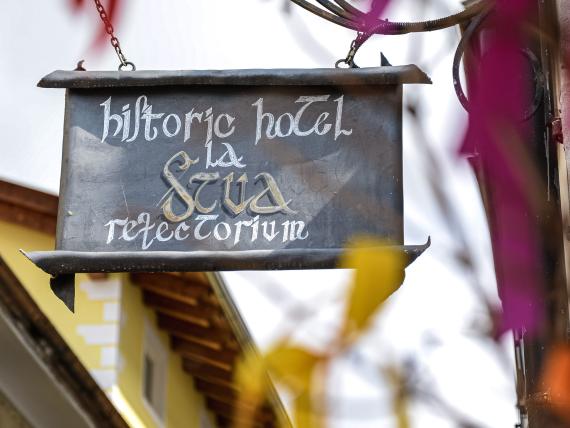 historic hotel
la
Stua
refectorium